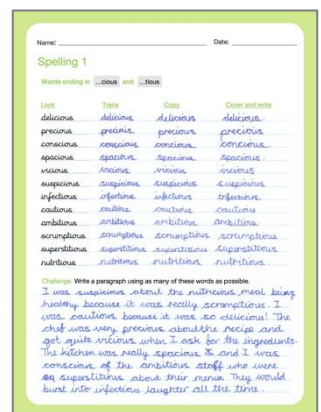 Name: Date:
Spelling 1
Words ending in ...cious and ...tious
Look Trace Copy Cover and write
delicious delicious delicious delicious
precious precious precious precious
conscious conscious concious concious
spacious spacious spacious spacious
vicious vicious vicious vicious
suspicious suspicious suspicious suspicious
infectious infectious infectious infectious
cautious cautious cautious cautious
ambitious ambitious ambitious ambitious
scrumptious scrumptious scrumptious scrumptious
superstitious superstitious superstitious superstitious
nutritious nutritious nutritious nutritious
Challenge: Write a paragraph using as many of these words as possible.
I was suspicious about the nutricious meal being
healthy because it was really scromptious. I
was cautious because it was so delicious! The
chef was very precious about the recipe and
got quite vicious when I ask for the ingredients.
The kitchen was really spacious and I was
conscious of the ambitious staff who were
superstitious about their menu They would
burst into infectious laughter all the time.